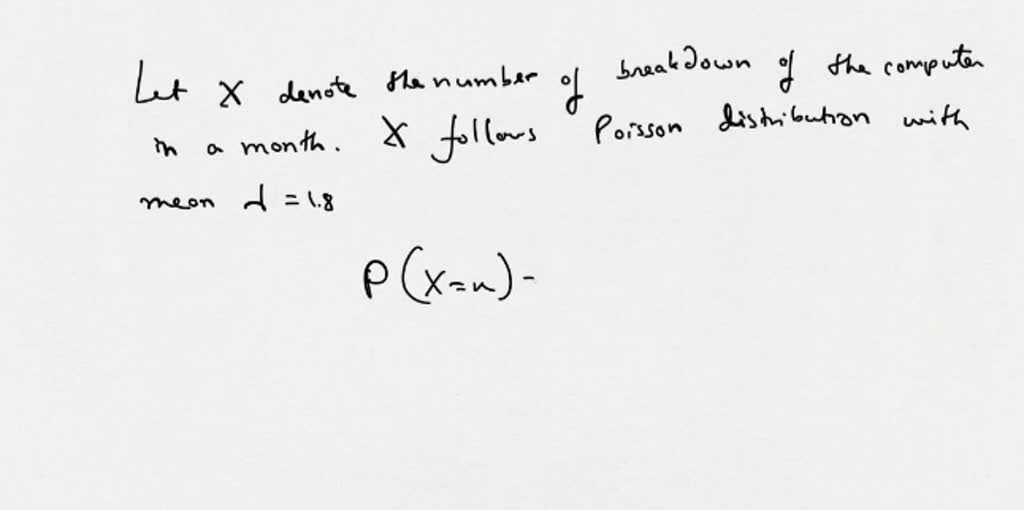 Let X denote the number of breakdown of the computer
in a month. X follows Poisson distribution with
mean λ = 1.8
P(X=n) -